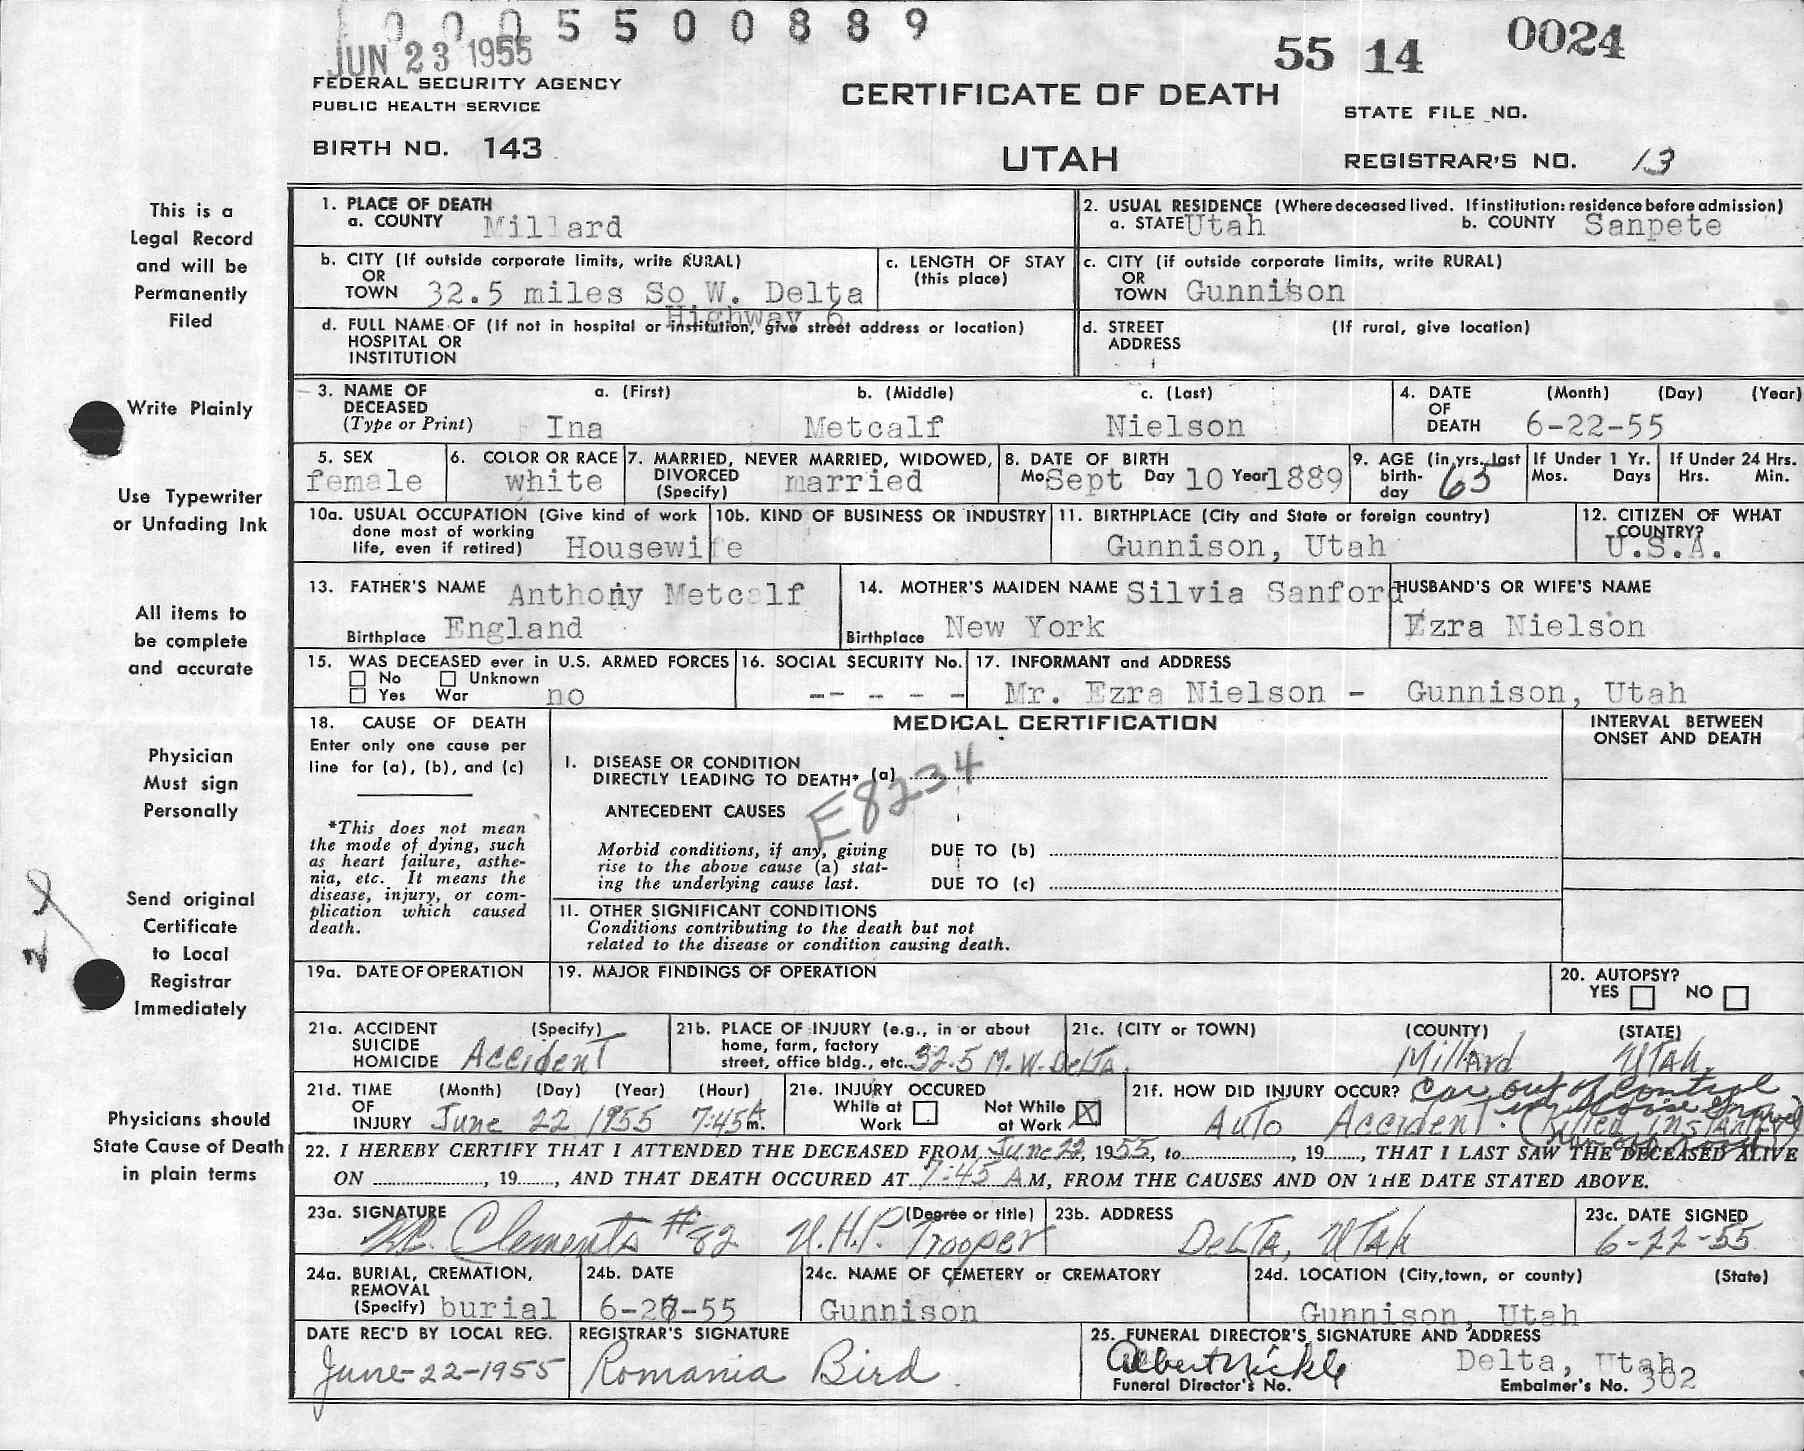 1 0 0 0 5 5 0 0 8 8 9
JUN 23 1955
55 14 0024
FEDERAL SECURITY AGENCY
PUBLIC HEALTH SERVICE
CERTIFICATE OF DEATH
STATE FILE NO.
BIRTH NO. 143
UTAH
REGISTRAR'S NO. 13
This is a
Legal Record
and will be
Permanently
Filed
Write Plainly
Use Typewriter
or Unfading Ink
All items to
be complete
and accurate
Physician
Must sign
Personally
Send original
Certificate
to Local
Registrar
Immediately
Physicians should
State Cause of Death
in plain terms
1. PLACE OF DEATH
a. COUNTY Millard
2. USUAL RESIDENCE (Where deceased lived. If institution: residence before admission)
a. STATE Utah b. COUNTY Sanpete
b. CITY (If outside corporate limits, write RURAL)
OR
TOWN 32.5 miles So W. Delta
Highway 6
c. LENGTH OF STAY
(this place)
c. CITY (if outside corporate limits, write RURAL)
OR
TOWN Gunnison
d. FULL NAME OF (If not in hospital or institution, give street address or location)
HOSPITAL OR
INSTITUTION
d. STREET (If rural, give location)
ADDRESS
3. NAME OF DECEASED (Type or Print)
a. (First) b. (Middle) c. (Last)
Ina Metcalf Nielson
4. DATE OF DEATH (Month) (Day) (Year)
6-22-55
5. SEX
female
6. COLOR OR RACE
white
7. MARRIED, NEVER MARRIED, WIDOWED,
DIVORCED
(Specify) married
8. DATE OF BIRTH
Mo. Sept Day 10 Year 1889
9. AGE (in yrs. last
birth-
day 65
If Under 1 Yr.
Mos. Days
If Under 24 Hrs.
Hrs. Min.
10a. USUAL OCCUPATION (Give kind of work
done most of working
life, even if retired) Housewife
10b. KIND OF BUSINESS OR INDUSTRY
11. BIRTHPLACE (City and State or foreign country)
Gunnison, Utah
12. CITIZEN OF WHAT
COUNTRY?
U.S.A.
13. FATHER'S NAME Anthony Metcalf
Birthplace England
14. MOTHER'S MAIDEN NAME Silvia Sanford
Birthplace New York
HUSBAND'S OR WIFE'S NAME
Ezra Nielson
15. WAS DECEASED ever in U.S. ARMED FORCES
No Unknown
Yes War no
16. SOCIAL SECURITY No.
-- - - -
17. INFORMANT and ADDRESS
Mr. Ezra Nielson - Gunnison, Utah
18. CAUSE OF DEATH
Enter only one cause per
line for (a), (b), and (c)
*This does not mean
the mode of dying, such
as heart failure, asthe-
nia, etc. It means the
disease, injury, or com-
plication which caused
death.
MEDICAL CERTIFICATION
INTERVAL BETWEEN
ONSET AND DEATH
I. DISEASE OR CONDITION
DIRECTLY LEADING TO DEATH* (a)
E8234
ANTECEDENT CAUSES
Morbid conditions, if any, giving
rise to the above cause (a) stat-
ing the underlying cause last.
DUE TO (b)
DUE TO (c)
II. OTHER SIGNIFICANT CONDITIONS
Conditions contributing to the death but not
related to the disease or condition causing death.
19a. DATE OF OPERATION
19. MAJOR FINDINGS OF OPERATION
20. AUTOPSY?
YES NO
21a. ACCIDENT (Specify)
SUICIDE
HOMICIDE Accident
21b. PLACE OF INJURY (e.g., in or about
home, farm, factory
street, office bldg., etc. 32.5 M. W. Delta,
21c. (CITY or TOWN) (COUNTY) (STATE)
Millard Utah,
21d. TIME OF INJURY (Month) (Day) (Year) (Hour)
June 22 1955 7:45 A m.
21e. INJURY OCCURED
While at Work
Not While at Work X
21f. HOW DID INJURY OCCUR? Car out of control
in loose gravel
Auto Accident. (Killed Instantly)
ran off road
22. I HEREBY CERTIFY THAT I ATTENDED THE DECEASED FROM June 22, 1955, to , 19 , THAT I LAST SAW THE DECEASED ALIVE
ON , 19 , AND THAT DEATH OCCURED AT 7:45 A M, FROM THE CAUSES AND ON THE DATE STATED ABOVE.
23a. SIGNATURE (Degree or title)
Clements #82 U.H.P. Trooper
23b. ADDRESS
Delta, Utah
23c. DATE SIGNED
6-22-55
24a. BURIAL, CREMATION,
REMOVAL
(Specify) burial
24b. DATE
6-2-55
24c. NAME OF CEMETERY or CREMATORY
Gunnison
24d. LOCATION (City, town, or county) (State)
Gunnison, Utah
DATE REC'D BY LOCAL REG.
June-22-1955
REGISTRAR'S SIGNATURE
Romania Bird.
25. FUNERAL DIRECTOR'S SIGNATURE AND ADDRESS
Albert Nickle Delta, Utah
Funeral Director's No. Embalmer's No. 302